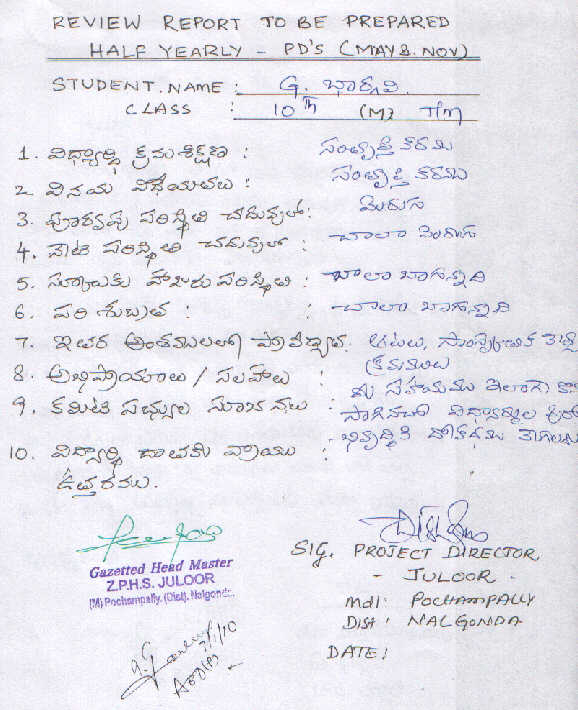 REVIEW REPORT TO BE PREPARED
HALF YEARLY - PD'S (MAY & NOV)
STUDENT.NAME : G. భార్గవి.
CLASS : 10th (M) T/m
1. విద్యార్థి క్రమశిక్షణ : సంతృప్తి కరము
2. వినయ విధేయతలు : సంతృప్తి కరము
3. పూర్వపు పరిస్థితి చదువులో : మెరుగు
4. నేటి పరిస్థితి చదువులో : చాలా మెరుగు
5. స్కూలుకు హాజరు పరిస్థితి : చాలా బాగున్నది
6. పరిశుభ్రత : : చాలా బాగున్నది
7. ఇతర అంశములలో ప్రావీణ్యత. ఆటలు, సాంస్కృతిక
8. అభిప్రాయాలు / సలహాలు :
9. కమిటి సభ్యుల సూచనలు : మీ సహాయము ఇలాగే
సాగినచో విద్యార్థుల
10. విద్యార్థి దాతకు వ్రాయు :
ఉత్తరము.
Gazetted Head Master
Z.P.H.S. JULOOR
(M) Pochampally, (Dist). Nalgonda.
SIG. PROJECT DIRECTOR
- JULOOR -
Mdl: POCHAMPALLY
Dist: NALGONDA
DATE: